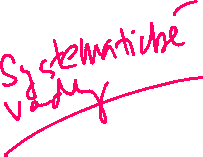 Systematické
vady